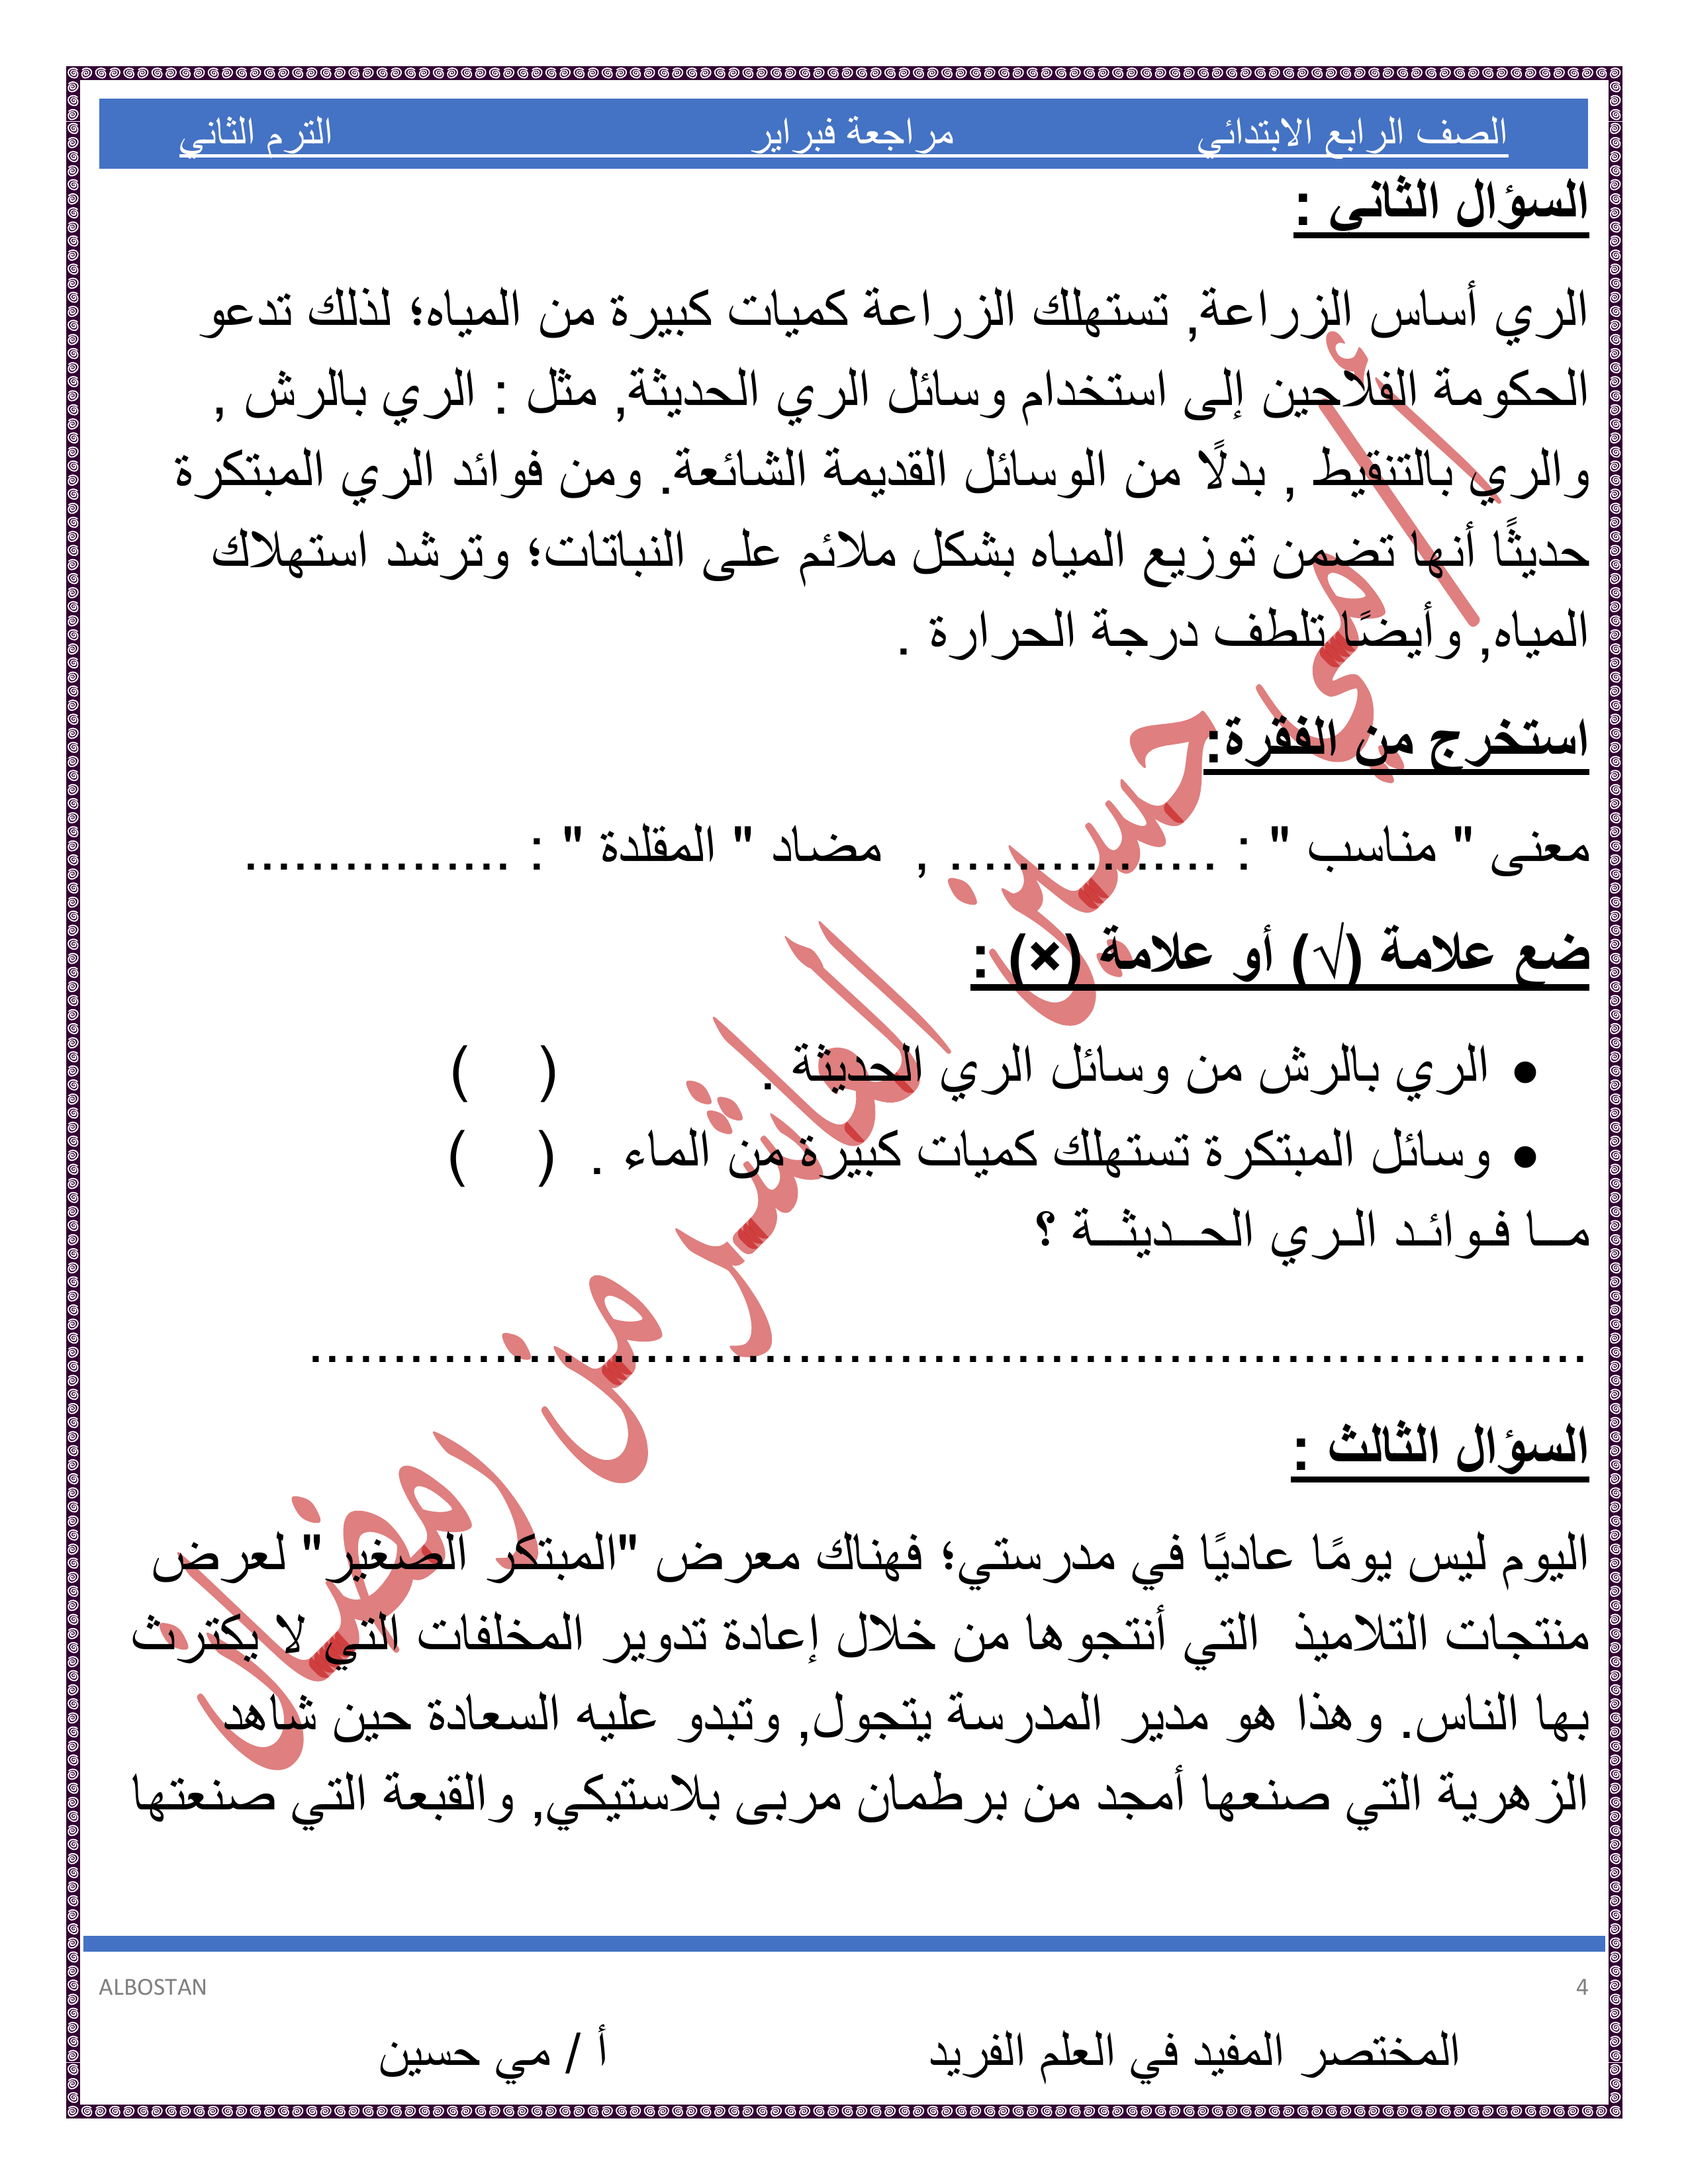 الصف الرابع الابتدائي مراجعة فبراير الترم الثاني
السؤال الثاني :
الري أساس الزراعة, تستهلك الزراعة كميات كبيرة من المياه؛ لذلك تدعو
الحكومة الفلاحين إلى استخدام وسائل الري الحديثة, مثل : الري بالرش ,
والري بالتنقيط , بدلًا من الوسائل القديمة الشائعة. ومن فوائد الري المبتكرة
حديثًا أنها تضمن توزيع المياه بشكل ملائم على النباتات؛ وترشد استهلاك
المياه, وأيضًا تلطف درجة الحرارة .
استخرج من الفقرة:
معنى " مناسب " : ................ , مضاد " المقلدة " : ................
ضع علامة (√) أو علامة (×) :
• الري بالرش من وسائل الري الحديثة . ( )
• وسائل المبتكرة تستهلك كميات كبيرة من الماء . ( )
مــا فـوائـد الـري الحــديثــة ؟
............................................................................
السؤال الثالث :
اليوم ليس يومًا عاديًا في مدرستي؛ فهناك معرض "المبتكر الصغير" لعرض
منتجات التلاميذ التي أنتجوها من خلال إعادة تدوير المخلفات التي لا يكترث
بها الناس. وهذا هو مدير المدرسة يتجول, وتبدو عليه السعادة حين شاهد
الزهرية التي صنعها أمجد من برطمان مربى بلاستيكي, والقبعة التي صنعتها
أ/مي حسين العاشر من رمضان
ALBOSTAN 4
المختصر المفيد في العلم الفريد أ / مي حسين